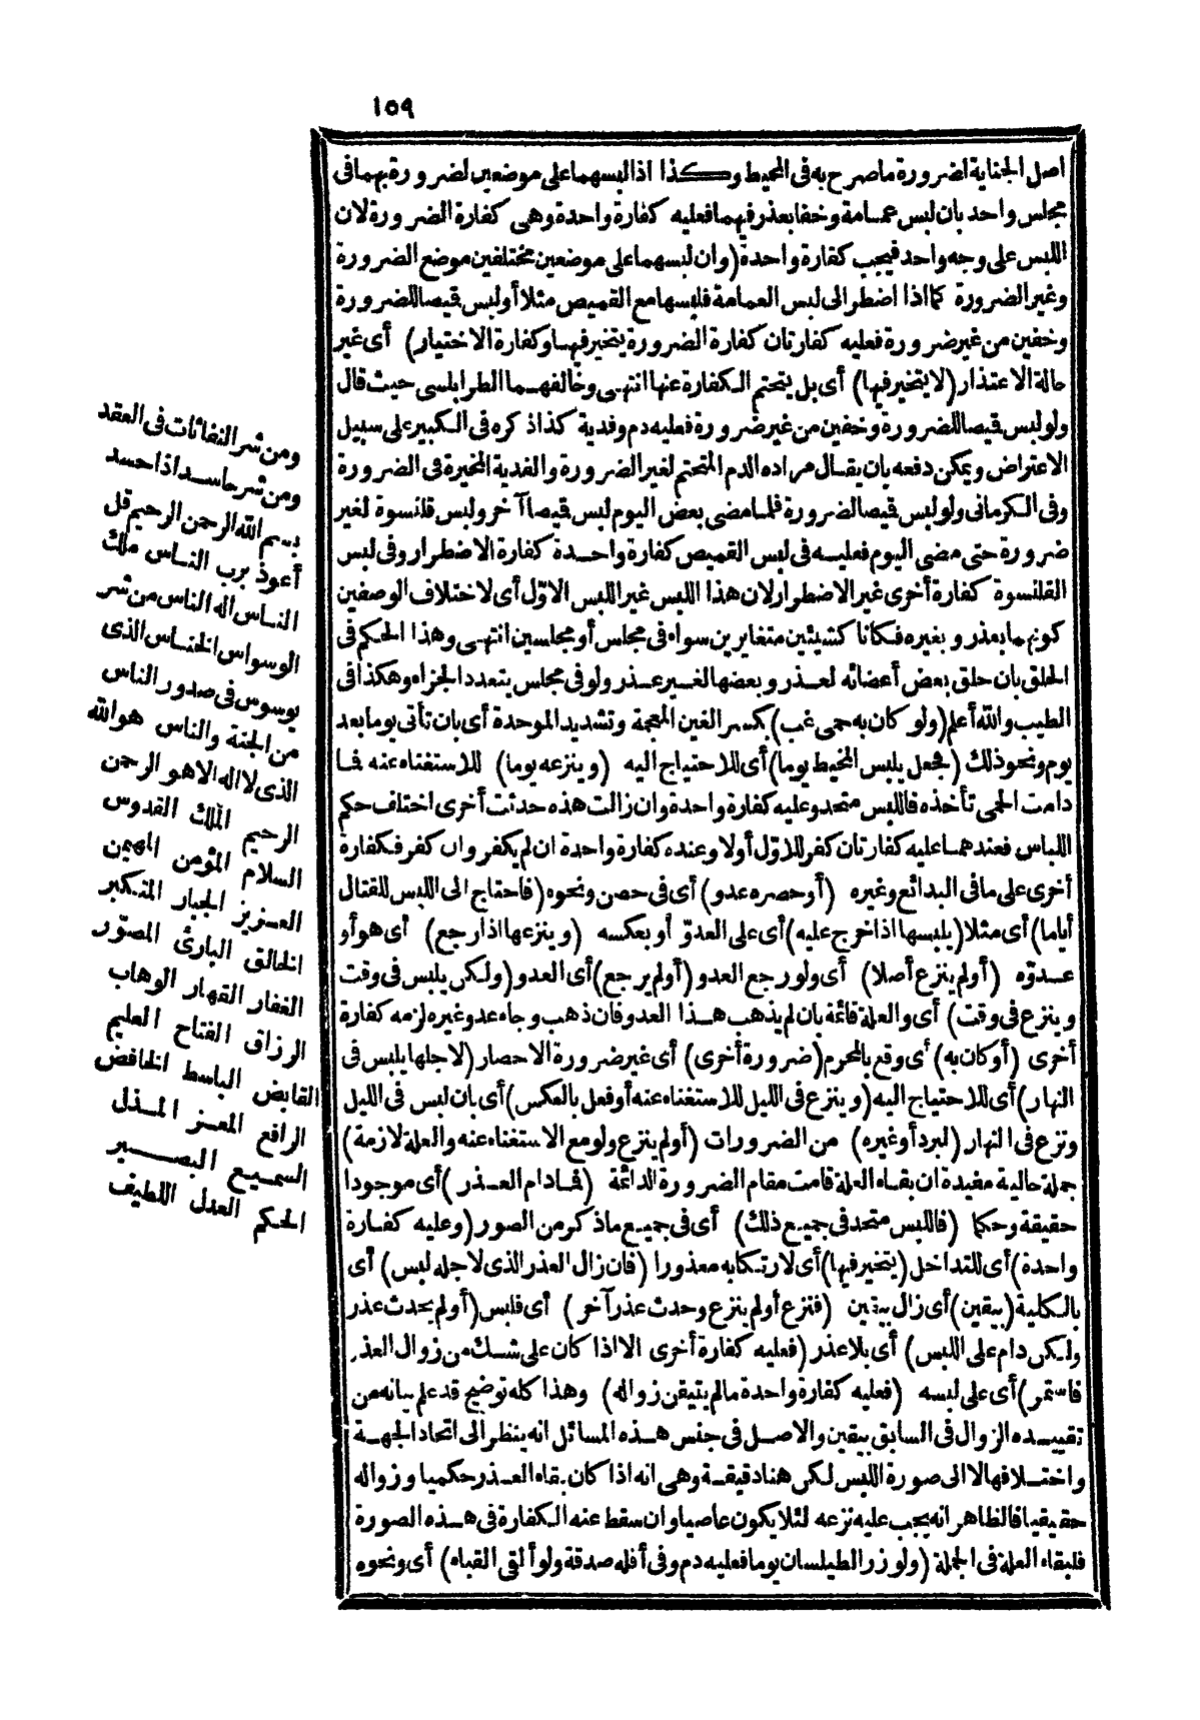 ١٥٩
اصل الجناية لضرورة ما صرح به في المحيط وكذا اذا لبسهما على موضعين لضرورة بهما في
مجلس واحد بان لبس عمامة وخفا بعذر فيهما فعليه كفارة واحدة وهى كفارة الضرورة لان
اللبس على وجه واحد فيجب كفارة واحدة (وان لبسهما على موضعين مختلفين موضع الضرورة
وغير الضرورة كما اذا اضطر الى لبس العمامة فلبسها مع القميص مثلا أولبس قميصا للضرورة
وخفين من غير ضرورة فعليه كفارتان كفارة الضرورة يتخير فيها وكفارة الاختيار) أى غير
حالة الاعتذار (لا يتخير فيها) أى بل يتحتم الكفارة عنها انتهى وخالفهما الطرابلسى حيث قال
ولو لبس قميصا للضرورة وخفين من غير ضرورة فعليه دم وفدية كذا ذكره فى الكبير على سبيل
الاعتراض ويمكن دفعه بان يقال مراده الدم المتحتم لغير الضرورة والفدية المخيرة فى الضرورة
وفى الكرمانى ولو لبس قميصا لضرورة فلما مضى بعض اليوم لبس قميصا آخر ولبس قلنسوة لغير
ضرورة حتى مضى اليوم فعليه فى لبس القميص كفارة واحدة كفارة الاضطرار وفى لبس
القلنسوة كفارة أخرى غير الاضطرار لان هذا اللبس غير اللبس الاول أى لاختلاف الوصفين
كونهما بعذر وبغيره فكانا كشيئين متغايرين سواء فى مجلس أو مجلسين انتهى وهذا الحكم فى
الحلق بان حلق بعض أعضائه لعذر وبعضها لغير عذر ولو فى مجلس يتعدد الجزاء وهكذا فى
الطيب والله أعلم (ولو كان به حمى غب) بكسر الغين المعجمة وتشديد الموحدة أى بان تأتى يوما بعد
يوم ونحو ذلك (فجعل يلبس المخيط يوما) أى للاحتياج اليه (وينزعه يوما) للاستغناء عنه فما
دامت الحمى تأخذه فاللبس متحد وعليه كفارة واحدة وان زالت هذه حدثت أخرى اختلف حكم
اللباس فعندهما عليه كفارتان كفر للاوّل أولا وعنده كفارة واحدة ان لم يكفر وان كفر فكفارة
أخرى على ما فى البدائع وغيره (أو حصره عدو) أى فى حصن ونحوه (فاحتاج الى اللبس للقتال
أياما) أى مثلا (يلبسها اذا خرج عليه) أى على العدوّ أو بعكسه (وينزعها اذا رجع) أى هو أو
عدوّه (أو لم ينزع أصلا) أى ولو رجع العدو (أو لم يرجع) أى العدو (ولكن يلبس فى وقت
وينزع فى وقت) أى والعلة قائمة بان لم يذهب هذا العدو فان ذهب وجاء عدو غيره لزمه كفارة
أخرى (أو كان به) أى وقع بالمحرم (ضرورة أخرى) أى غير ضرورة الاحصار (لاجلها يلبس فى
النهار) أى للاحتياج اليه (وينزع فى الليل للاستغناء عنه أو فعل بالعكس) أى بان لبس فى الليل
ونزع فى النهار (لبرد أو غيره) من الضرورات (أو لم ينزع ولو مع الاستغناء عنه والعلة لازمة)
جملة حالية مفيدة ان بقاء العلة قامت مقام الضرورة الدائمة (فما دام العذر) أى موجودا
حقيقة وحكما (فاللبس متحد فى جميع ذلك) أى فى جميع ما ذكر من الصور (وعليه كفارة
واحدة) أى للتداخل (يتخير فيها) أى لارتكابه معذورا (فان زال العذر الذى لاجله لبس) أى
بالكلية (بيقين) أى زال بيقين (فنزع أو لم ينزع وحدث عذر آخر) أى فلبس (أو لم يحدث عذر
ولكن دام على اللبس) أى بلا عذر (فعليه كفارة أخرى الا اذا كان على شك من زوال العذر
فاستمر) أى على لبسه (فعليه كفارة واحدة ما لم يتيقن زواله) وهذا كله توضيح قد علم بيانه من
تقييده الزوال فى السابق بيقين والاصل فى جنس هذه المسائل انه ينظر الى اتحاد الجهة
واختلافها لا الى صورة اللبس لكن هنا دقيقة وهى انه اذا كان بقاء العذر حكميا وزواله
حقيقيا فالظاهر انه يجب عليه نزعه لئلا يكون عاصيا وان سقط عنه الكفارة فى هذه الصورة
فلبقاء العلة فى الجملة (ولو زر الطيلسان يوما فعليه دم وفى أقله صدقة ولو ألقى القباء) أى ونحوه
ومن شر النفاثات فى العقد
ومن شر حاسد اذا حسد
بسم الله الرحمن الرحيم قل
أعوذ برب الناس ملك
الناس اله الناس من شر
الوسواس الخناس الذى
يوسوس فى صدور الناس
من الجنة والناس هو الله
الذى لا اله الا هو الرحمن
الرحيم الملك القدوس
السلام المؤمن المهيمن
العزيز الجبار المتكبر
الخالق البارئ المصوّر
الغفار القهار الوهاب
الرزاق الفتاح العليم
القابض الباسط الخافض
الرافع المعز المذل
السميع البصير
الحكم العدل اللطيف